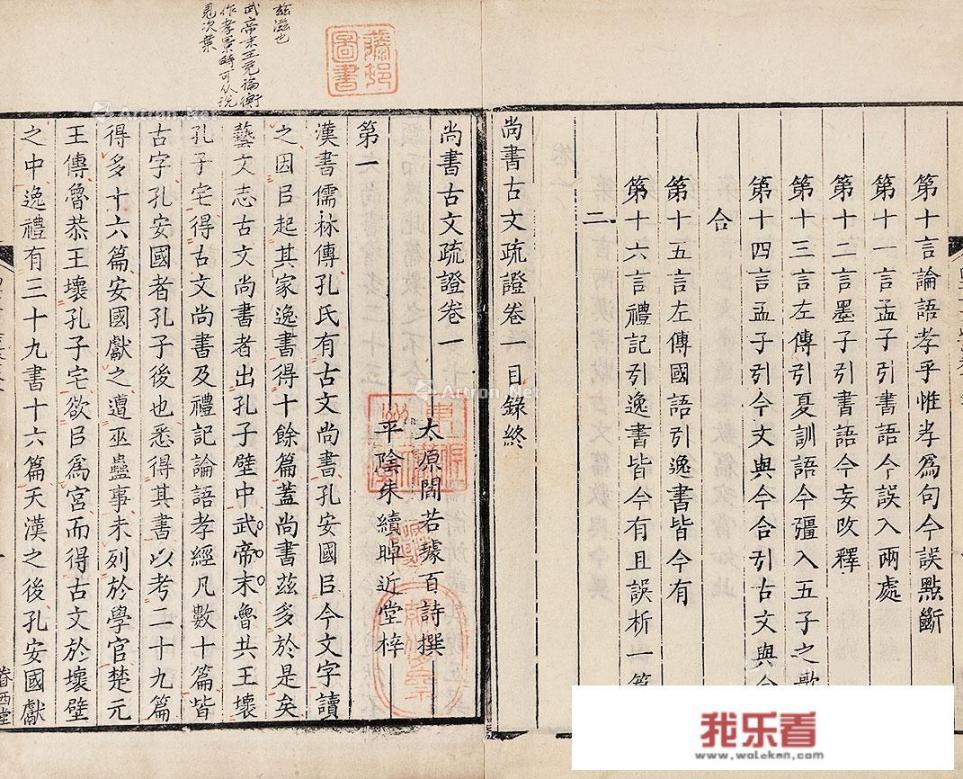 第十言論語孝乎惟孝爲句今誤點斷
第十一言孟子引書語今誤入兩處
第十二言墨子引書語今妄改釋
第十三言左傳引夏訓語今彊入五子之歌
第十四言孟子引今文與今合引古文與今
合
第十五言左傳國語引逸書皆今有
第十六言禮記引逸書皆今有且誤析一篇
二
尚書古文疏證卷一目錄終
尚書古文疏證卷一
太原閻若璩百詩撰
平陰朱續晫近堂梓
第一
漢書儒林傳孔氏有古文尚書孔安國㠯今文字讀
之因㠯起其家逸書得十餘篇蓋尚書茲多於是矣
藝文志古文尚書者出孔子壁中武帝末魯共王壞
孔子宅得古文尚書及禮記論語孝經凡數十篇皆
古字孔安國者孔子後也悉得其書以考二十九篇
得多十六篇安國獻之遭巫蠱事未列於學官楚元
王傳魯恭王壞孔子宅欲㠯爲宮而得古文於壞壁
之中逸禮有三十九書十六篇天漢之後孔安國獻
眷西堂
茲滋也
武帝末王充論衡
作孝景時可从說
見次葉
藤邨
圖書
Artron.Net
我乐看
www.woleken.com